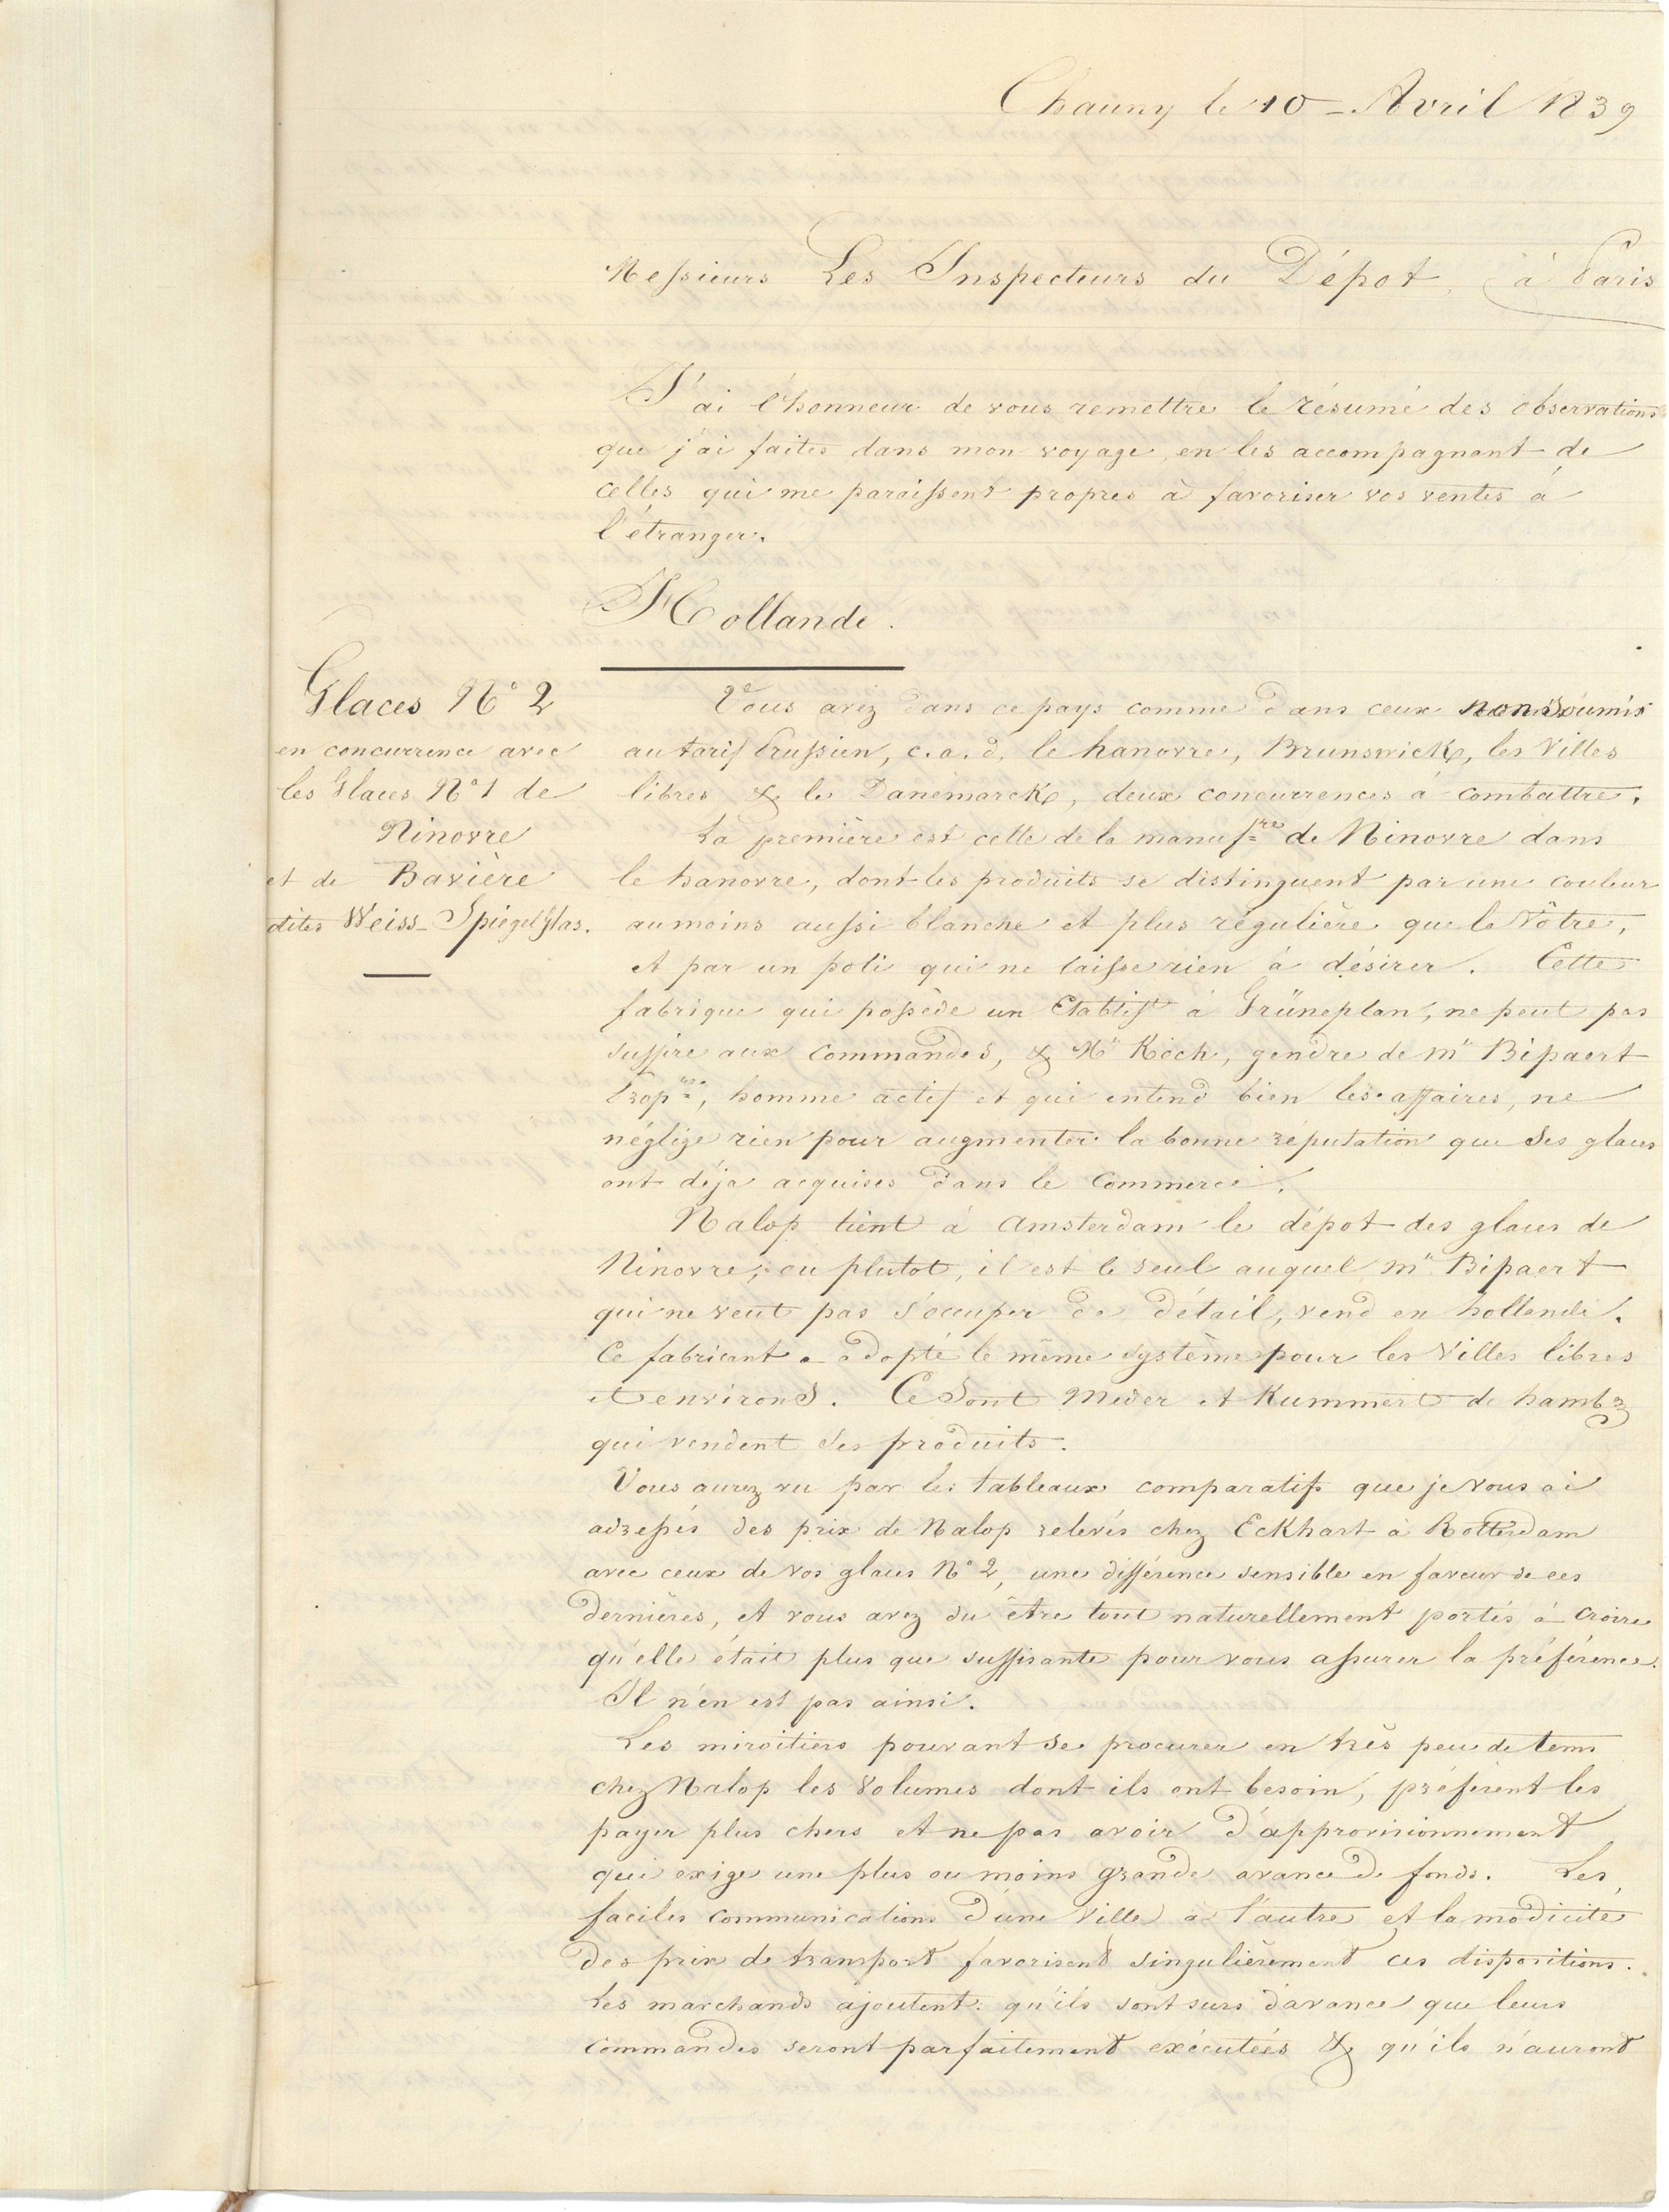 Chauny le 10 - Avril 1839
Messieurs Les Inspecteurs du Dépot, à Paris
J'ai l'honneur de vous remettre le résumé des observations
que j'ai faites dans mon voyage, en les accompagnant de
celles qui me paraissent propres à favoriser vos ventes à
l'étranger.
Hollande.
Glaces N° 2
en concurrence avec
les Glaces N° 1 de
Ninovre
et de Bavière
dites Weiss-Spiegelglas.
Vous avez dans ce pays comme dans ceux non soumis
au tarif Prussien, c.a.d. le hanovre, Brunswick, les Villes
libres & le Danemarck, deux concurrences à combattre.
La première est celle de la manufre de Ninovre dans
le hanovre, dont les produits se distinguent par une couleur
au moins aussi blanche et plus régulière que la Vôtre,
et par un poli qui ne laisse rien à désirer. Cette
fabrique qui possède un Etablist à Grüneplan, ne peut pas
suffire aux commandes, & Mr Koch, gendre de Mr Bipaert
Propre, homme actif et qui entend bien les affaires, ne
néglige rien pour augmenter la bonne réputation que ses glaces
ont déjà acquises dans le Commerce.
Nalop tient à Amsterdam le dépot des glaces de
Ninovre, ou plutot, il est le seul auquel Mr Bipaert
qui ne veut pas s'occuper de détail, vend en hollande.
Ce fabricant a adopté le même système pour les Villes libres
et environs. Ce sont Meder et Kummert de hambg
qui vendent ses produits.
Vous aurez vu par les tableaux comparatifs que je vous ai
adressés des prix de Nalop relevés chez Eckhart à Rotterdam
avec ceux de vos glaces N° 2, une différence sensible en faveur de ces
dernières, et vous avez du être tout naturellement portés à croire
qu'elle était plus que suffisante pour vous assurer la préférence.
Il n'en est pas ainsi.
Les miroitiers pouvant se procurer en très peu de tems
chez Nalop les Volumes dont ils ont besoin, préfèrent les
payer plus chers et ne pas avoir d'approvisionnement
qui exige une plus ou moins grande avance de fonds. Les
faciles communications d'une Ville à l'autre et la modicité
des prix de transport favorisent singulièrement ces dispositions.
Les marchands ajoutent qu'ils sont surs d'avance que leurs
commandes seront parfaitement exécutées & qu'ils n'auront